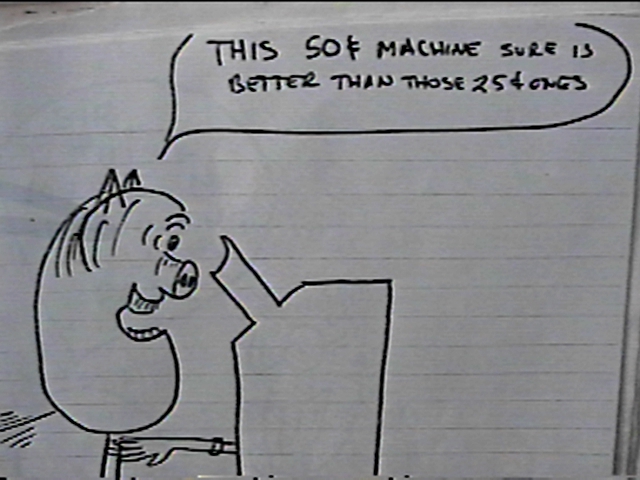 THIS 50¢ MACHINE SURE IS
BETTER THAN THOSE 25¢ ONES